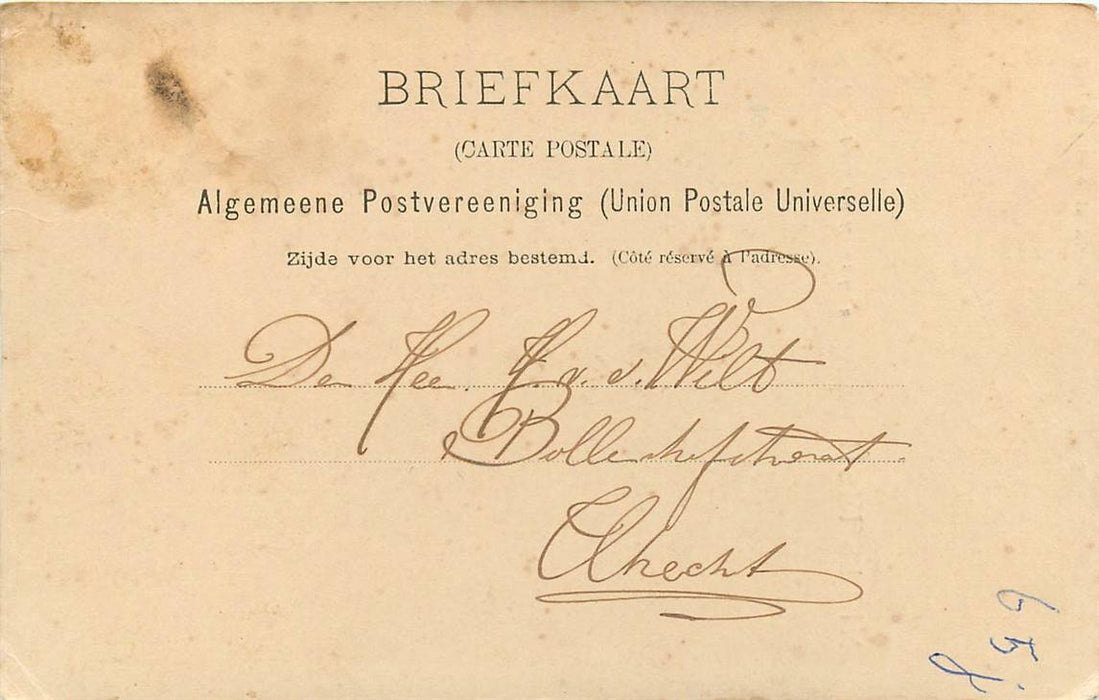 BRIEFKAART
(CARTE POSTALE)
Algemeene Postvereeniging (Union Postale Universelle)
Zijde voor het adres bestemd. (Côté réservé à l'adresse).
De Heer H. v. d. Wilt
Utrecht
65